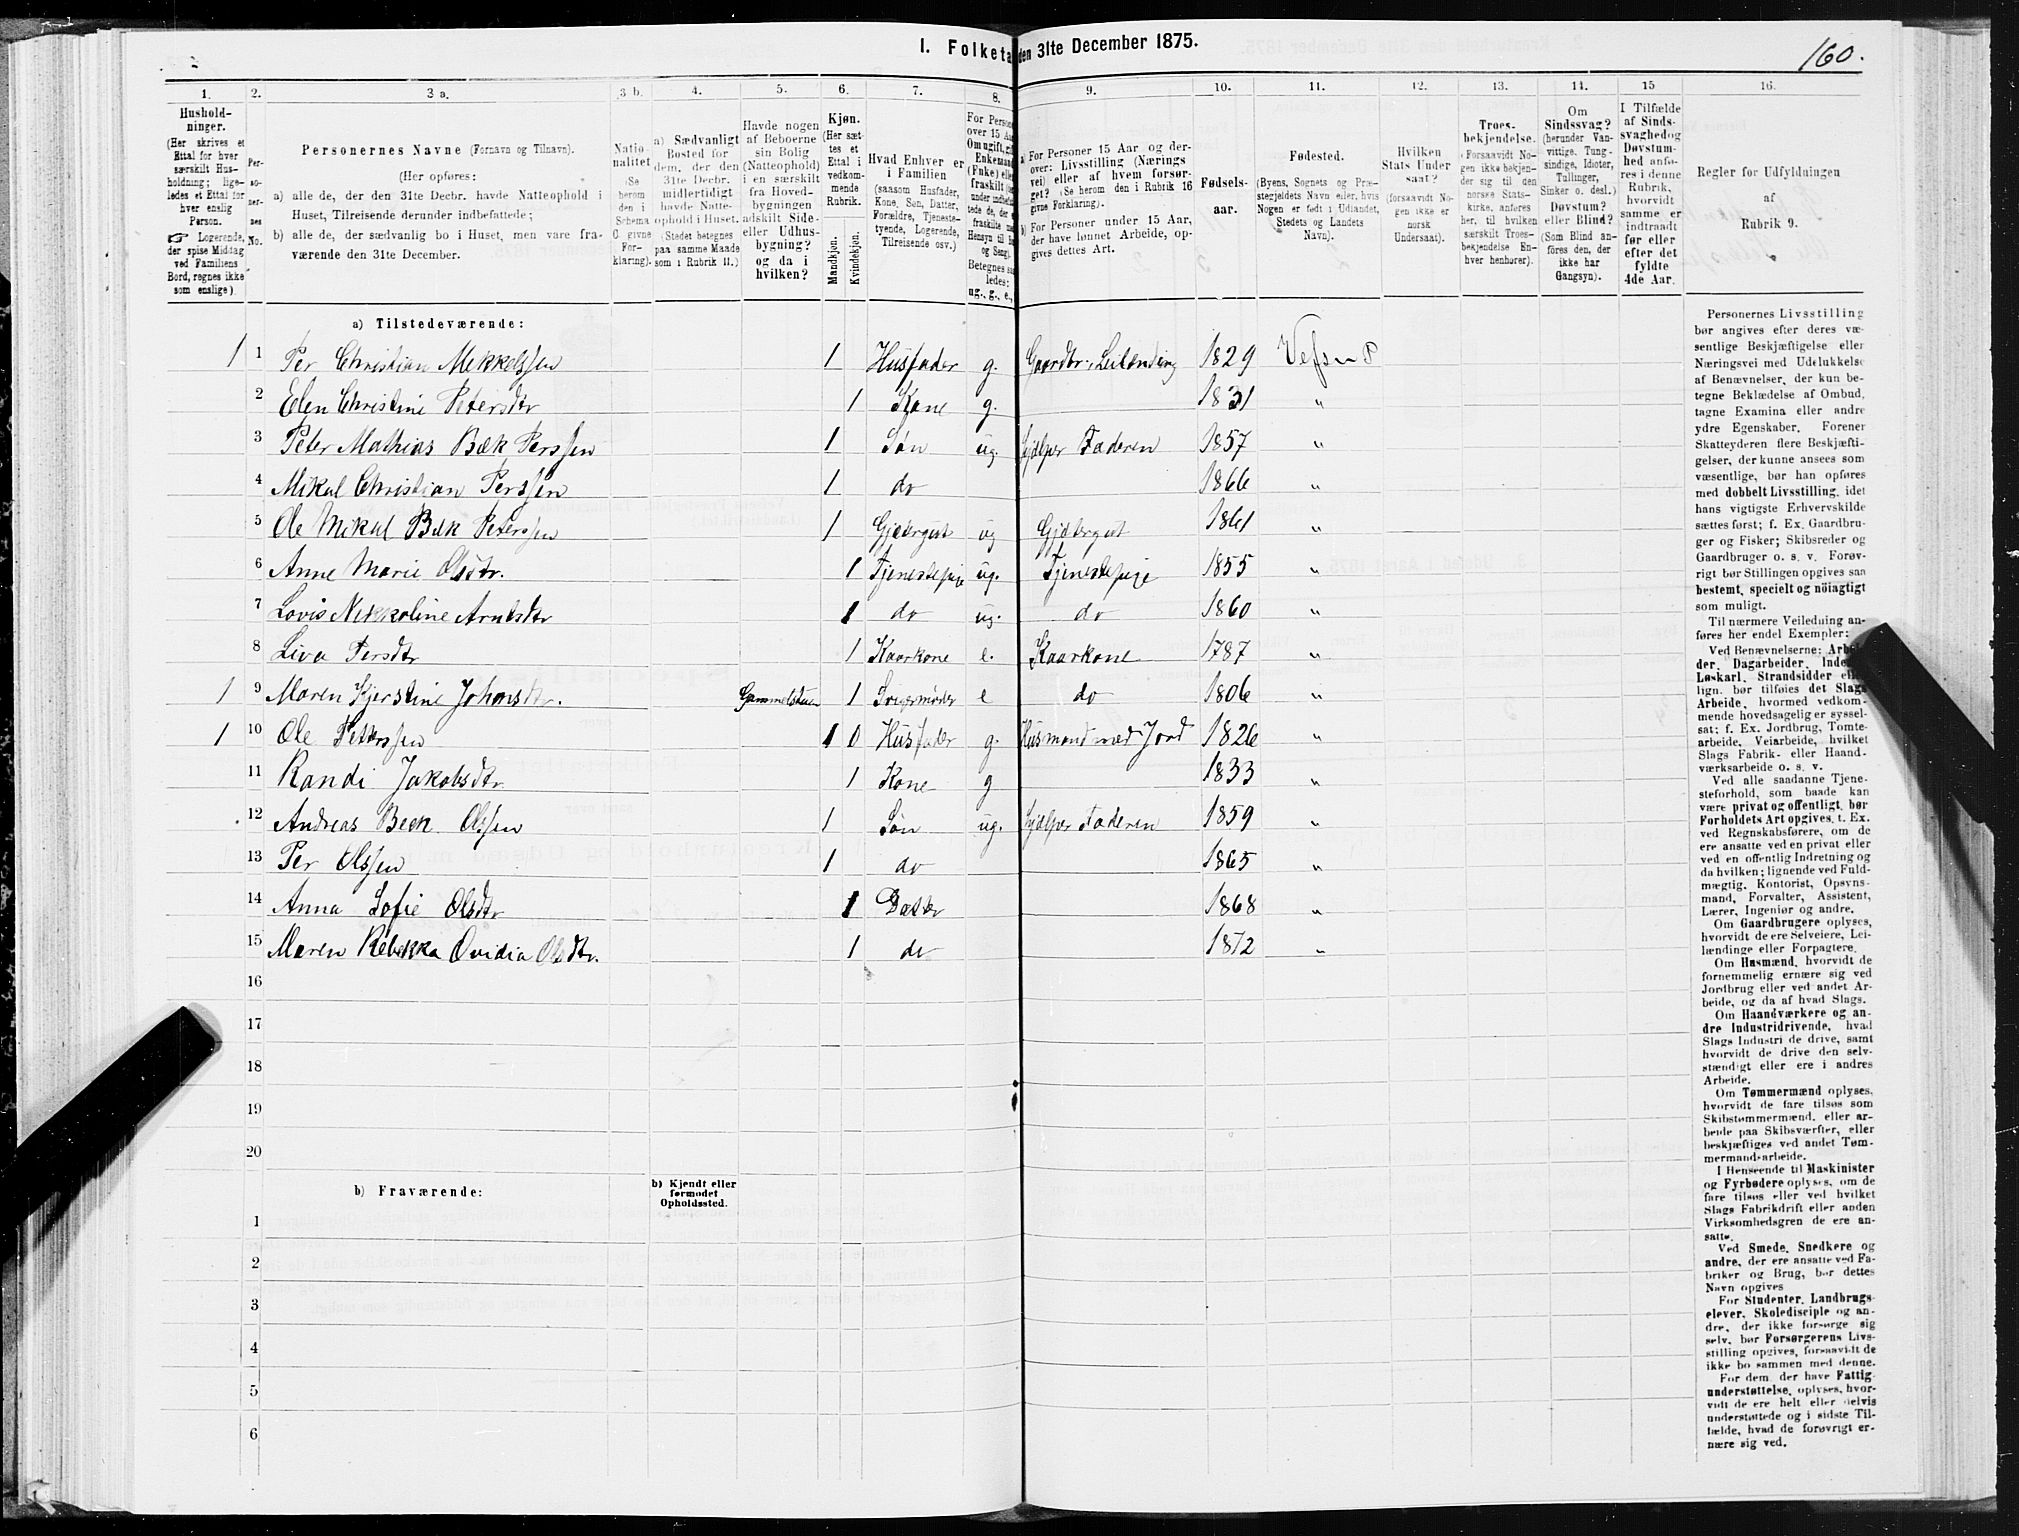 I. Folketa den 31te December 1875.
160.
1. 2. 3 a. 3 b. 4. 5. 6. 7. 8. 9. 10. 11. 12. 13. 14. 15 16.
Hushold-
ninger.
(Her skrives et
Ettal for hver
særskilt Hus-
holdning; lige-
ledes et Ettal for
hver enslig
Person.
☞ Logerende,
der spise Middag
ved Familiens
Bord, regnes ikke
som enslige).
Per-
so-
ner-
nes
No.
Personernes Navne (Fornavn og Tilnavn).
(Her opføres:
a) alle de, der den 31te Decbr. havde Natteophold i
Huset, Tilreisende derunder indbefattede;
b) alle de, der sædvanlig bo i Huset, men vare fra-
værende den 31te December.
Natio-
nalitet
(Se
herom
den i
Schema
C. givne
For-
klaring).
a) Sædvanligt
Bosted for
dem, der den
31te Decbr.
midlertidigt
havde Natte-
ophold i Huset.
(Stedet betegnes
paa samme Maade
som i Rubrik 11.)
Havde nogen
af Beboerne
sin Bolig
(Natteophold)
i en særskilt
fra Hoved-
bygningen
adskilt Side-
eller Udhus-
bygning?
og da i
hvilken?
Kjøn.
(Her sæt-
tes et
Ettal i
vedkom-
mende
Rubrik.
Mandkjøn.
Kvindekjøn.
Hvad Enhver er
i Familien
(saasom Husfader,
Kone, Søn, Datter,
Forældre, Tjeneste-
tyende, Logerende,
Tilreisende osv.)
For Person
over 15 Aa
Om ugift, gif
Enkemand
(Fnke) elle
fraskilt
Betegnes saa
ledes:
ug., g., e.,
a) For Personer 15 Aar og der-
over: Livsstilling (Nærings
vei) eller af hvem forsør-
get? (Se herom den i Rubrik 16
givne Forklaring).
b) For Personer under 15 Aar,
der have lønnet Arbeide, op-
gives dettes Art.
Fødsels-
aar.
Fødested.
(Byens, Sognets og Præ-
stegjeldets Navn eller, hvis
Nogen er født i Udlandet,
Stedets og Landets
Navn).
Hvilken
Stats Under
saat?
(forsaavidt No-
gen ikke er
norsk
Undersaat).
Troes-
bekjendelse.
(Forsaavidt No-
gen ikke bekjen-
der sig til den
norske Stats-
kirke, anføres
her, til hvilken
særskilt Troes-
bekjendelse En-
hver henhører).
Om
Sindssvag?
(herunder Van-
vittige, Tung-
sindige, Idioter,
Tullinger,
Sinker o. desl.)
Døvstum?
eller Blind?
(Som Blind an-
føres den, der
ikke har
Gangsyn).
I Tilfælde
af Sinds-
svaghed og
Døvstum-
hed anfø-
res i denne
Rubrik,
hvorvidt
samme er
indtraadt
før eller
efter det
fyldte
4de Aar.
Regler for Udfyldningen
af
Rubrik 9.
a) Tilstedeværende:
1 1 Per Christian Mekkelssen 1 Husfader g. Gaardbr. Leilænding 1829 Vefsn P
2 Elen Christine Petersdtr 1 Kone g. 1831 "
3 Peter Mathias Bæk Perssen 1 Søn ug. hjelper Faderen 1857 "
4 Mikal Christian Perssen 1 do 1866 "
5 Ole Mikal Bæk Peterssen 1 Gjætergut ug Gjætergut 1861 "
6 Anne Marie Olsdtr. 1 Tjenestepige ug. Tjenestepige 1855 "
7 Lovis Nikkoline Arntsdtr 1 do ug. do 1860 "
8 Liva Persdtr 1 Kaarkone e. Kaarkone 1787 "
1 9 Maren Kjerstine Johansdtr. Gammelstuen 1 Svigermoder e do 1806 "
1 10 Ole Peterssen 1 0 Husfader g. Husmand med Jord 1826 "
11 Randi Jakobsdtr 1 Kone g 1833 "
12 Andreas Beck Olssen 1 Søn ug. hjelper Faderen 1859 "
13 Per Olssen 1 do 1865 "
14 Anna Sofie Olsdtr 1 Datter 1868 "
15 Maren Rebekka Ovidia Olsdtr. 1 do 1872 "
16
17
18
19
20
b) Fraværende:
b) Kjendt eller
formodet
Opholdssted.
1
2
3
4
5
6
Personernes Livsstilling
bør angives efter deres væ-
sentlige Beskjæftigelse eller
Næringsvei med Udelukkelse
af Benævnelser, der kun be-
tegne Beklædelse af Ombud,
tagne Examina eller andre
ydre Egenskaber. Forener
Skatteyderen flere Beskjæfti-
gelser, der kunne ansees som
væsentlige, bør han opføres
med dobbelt Livsstilling, idet
hans vigtigste Erhvervskilde
sættes først; f. Ex. Gaardbru-
ger og Fisker; Skibsreder og
Gaardbruger o. s. v. Forøv-
rigt bør Stillingen opgives saa
bestemt, specielt og nöiagtigt
som muligt.
Til nærmere Veiledning an-
føres her endel Exempler:
Ved Benævnelserne: Arbei-
der, Dagarbeider, Inder
Løskarl, Strandsidder el
lign. bør tilføies det Slags
Arbeide, hvormed vedkom-
mende hovedsagelig er syssel-
sat; f. Ex. Jordbrug, Tomte-
arbeide, Veiarbeide, hvilket
Slags Fabrik- eller Haand-
værksarbeide o. s. v.
Ved alle saadanne Tjene-
steforhold, som baade kan
være privat og offentligt, bør
Forholdets Art opgives, t. Ex.
ved Regnskabsførere, om de
ere ansatte ved en privat eller
ved en offentlig Indretning og
da hvilken; lignende ved Fuld-
mægtig, Kontorist, Opsyns-
mand, Forvalter, Assistent,
Lærer, Ingeniør og andre.
Om Gaardbrugere oplyses,
hvorvidt de ere Selveiere, Lei-
lændinge eller Forpagtere.
Om Husmænd, hvorvidt de
fornemmelig ernære sig ved
Jordbrug eller ved andet Ar-
beide, og da af hvad Slags.
Om Haandværkere og an-
dre Industridrivende, hvad
Slags Industri de drive, samt
hvorvidt de drive den selv-
stændigt eller ere i andres
Arbeide.
Om Tømmermænd oplyses,
hvorvidt de fare tilsøs som
Skibstømmermænd, eller ar-
beide paa Skibsværfter, eller
beskjæftiges ved andet Tøm-
mermandsarbeide.
I Henseende til Maskinister
og Fyrbødere oplyses, om de
fare tilsøs eller ved hvilket
Slags Fabrikdrift eller anden
Virksomhedsgren de ere an-
satte.
Ved Smede, Snedkere og
andre, der ere ansatte ved Fa-
briker og Brug, bør dettes
Navn opgives
For Studenter, Landbrugs-
elever, Skoledisciple og an-
dre, der ikke forsørge sig
selv, bør Forsørgerens Livs-
stilling opgives, forsaavidt de
ikke bo sammen med denne.
For dem, der have Fattig-
understøttelse, oplyses, hvor-
vidt de ere helt eller delvis
understøttede og i sidste Til-
fælde, hvad de forøvrigt er-
nære sig ved.